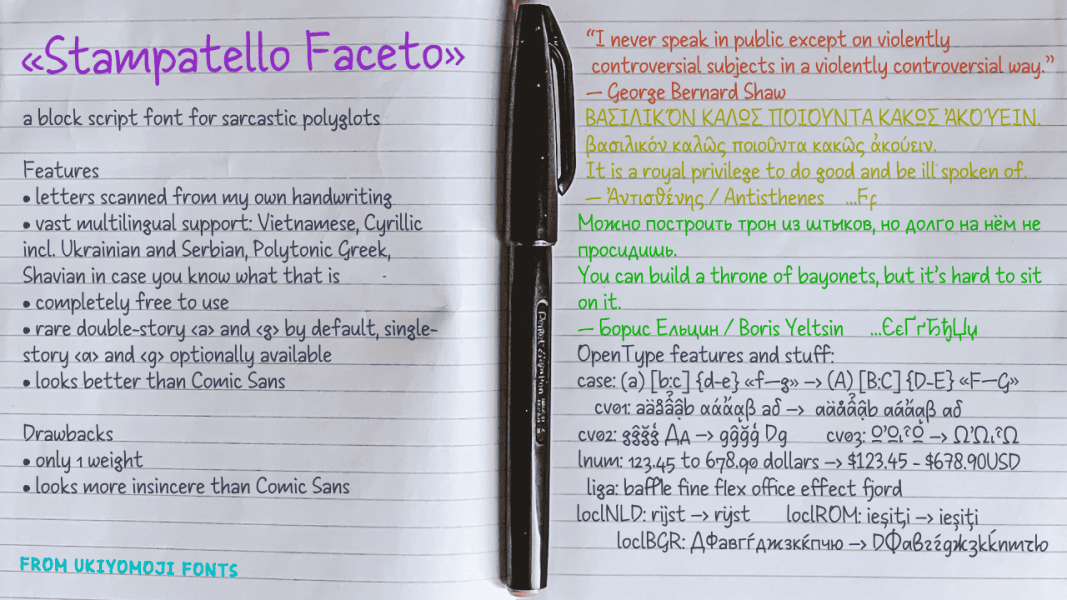 «Stampatello Faceto»
a block script font for sarcastic polyglots
Features
• letters scanned from my own handwriting
• vast multilingual support: Vietnamese, Cyrillic
incl. Ukrainian and Serbian, Polytonic Greek,
Shavian in case you know what that is
• completely free to use
• rare double-story <a> and <g> by default, single-
story <ɑ> and <ɡ> optionally available
• looks better than Comic Sans
Drawbacks
• only 1 weight
• looks more insincere than Comic Sans
FROM UKIYOMOJI FONTS
“I never speak in public except on violently
controversial subjects in a violently controversial way.”
— George Bernard Shaw
ΒΑΣΙΛΙΚΌΝ ΚΑΛΩΣ ΠΟΙΟΥΝΤΑ ΚΑΚΩΣ ἈΚΟΎΕΙΝ.
βασιλικόν καλῶς ποιοῦντα κακῶς ἀκούειν.
It is a royal privilege to do good and be ill spoken of.
— Ἀντισθένης / Antisthenes ...Ϝϝ
Можно построить трон из штыков, но долго на нём не
просидишь.
You can build a throne of bayonets, but it’s hard to sit
on it.
— Борис Ельцин / Boris Yeltsin ...ЄєҐґЂђЏџ
OpenType features and stuff:
case: (a) [b:c] {d-e} «f—g» → (A) [B:C] {D-E} «F—G»
lnum: 123.45 to 678.90 dollars → $123.45 - $678.90USD
liga: baffle fine flex office effect fjord
loclNLD: rijst → rijst loclROM: ieşiţi → ieșiți
loclBGR: ДФавгѓджзкќпчю → ДФавгѓджзкќптю